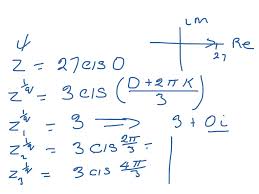 Im
Re
27
ψ
z = 27 cis 0
z^⅓ = 3 cis (0 + 2πK / 3)
z₁^⅓ = 3 ⟹ 3 + 0i
z₂^⅓ = 3 cis 2π/3 =
z₃^⅓ = 3 cis 4π/3